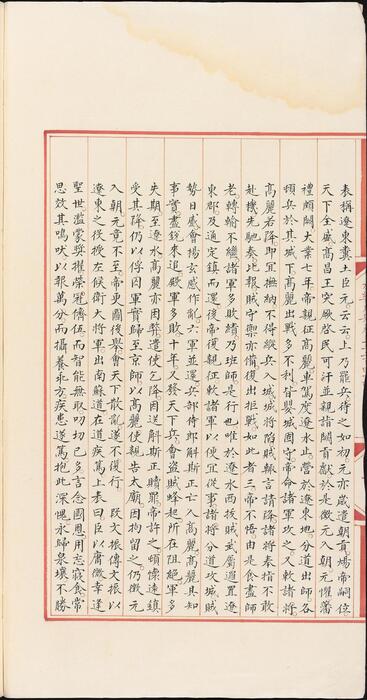 表稱遼東糞土臣元云云上乃罷兵待之如初元亦歲遣朝貢煬帝嗣位
天下全盛高昌王突厥啓民可汗並親詣闕貢獻於是徵元入朝元懼藩
禮頗闕大業七年帝親征高麗車駕度遼水止營於遼東地分道出師各
頓兵於其城下高麗出戰多不利皆嬰城固守帝命諸軍攻之又敕諸將
高麗若降即宜撫納不得縱兵入城城將陷賊輒言請降諸將奉指不敢
赴機先馳奏比報賊守禦亦備復出拒戰如此者三帝不悟由是食盡師
老轉輸不繼諸軍多敗績乃班師是行也唯於遼水西拔賊武厲邏置遼
東郡及通定鎮而還後帝復親征敕諸軍以便宜從事諸將分道攻城賊
勢日蹙會楊玄感作亂六軍並還兵部侍郎斛斯正亡入高麗高麗具知
事實盡銳來追殿軍多敗十年又發天下兵會盜賊蜂起所在阻絕軍多
失期至遼水高麗亦困弊遣使乞降因送斛斯正贖罪帝許之頓懷遠鎮
受其降仍以俘囚軍實歸至京師以高麗使親告太廟因拘留之仍徵元
入朝元竟不至帝更圖後舉會天下散亂遂不復行　段文振傳文振以
遼東之役授左候衛大將軍出南蘇道在道疾篤上表曰臣以庸微幸逢
聖世濫蒙獎擢榮冠儕伍而智能無取叨切已多言念國恩用忘寢食常
思效其鳴吠以報萬分而攝養乖方疾患遂篤抱此深愧永歸泉壤不勝